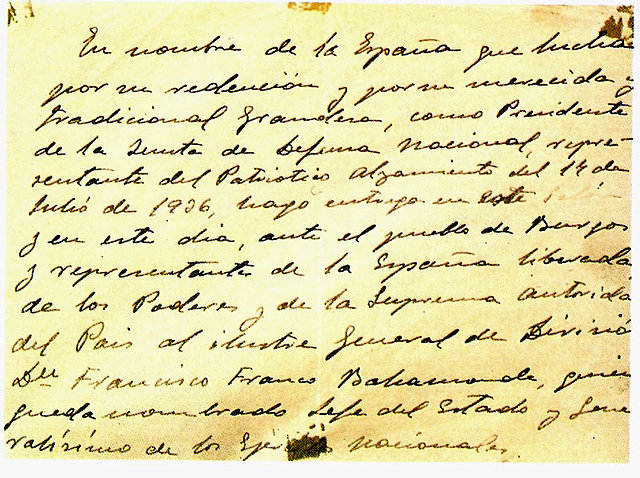 En nombre de la España que lucha
por su redención y por su merecida y
tradicional Grandeza, como Presidente
de la Junta de Defensa Nacional, repre-
sentante del Patriotico Alzamiento del 17 de
Julio de 1936, hago entrega en este
y en este dia, ante el pueblo de Burgos
y representante de la España liberada
de los Poderes y de la Suprema autorida
del Pais al ilustre General de División
Dn Francisco Franco Bahamonde, quien
queda nombrado Jefe del Estado y Gene
ralísimo de los Ejércitos nacionales.